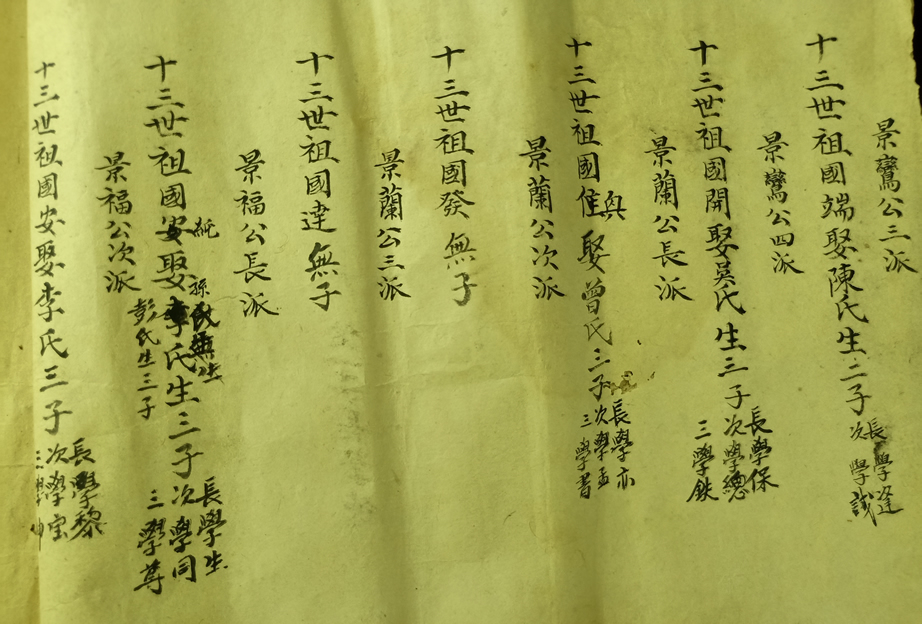 景鸞公三派
十三世祖國端娶陳氏生二子
長學逢
次學誠
景鸞公四派
十三世祖國開娶吳氏生三子
長學保
次學總
三學鉄
景蘭公長派
十三世祖國隹娶曾氏三子
與
長學亦
次學孟
三學書
景蘭公次派
十三世祖國發無子
景蘭公三派
十三世祖國達無子
景福公長派
十三世祖國安娶李氏生三子
統
孫氏無生
彭氏生三子
長學生
次學同
三學尊
景福公次派
十三世祖國安娶李氏三子
長學黎
次學宝
三學